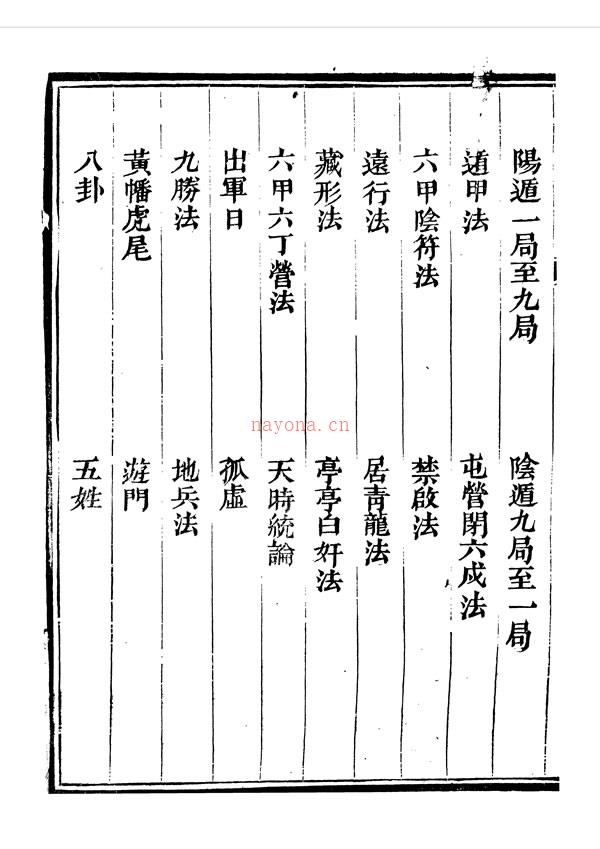 陽遁一局至九局
陰遁九局至一局
遁甲法
屯營閉六戍法
六甲陰符法
禁啟法
遠行法
居青龍法
藏形法
亭亭白奸法
六甲六丁營法
天時統論
出軍日
孤虛
九勝法
地兵法
黃幡虎尾
遊門
八卦
五姓
nayona.cn